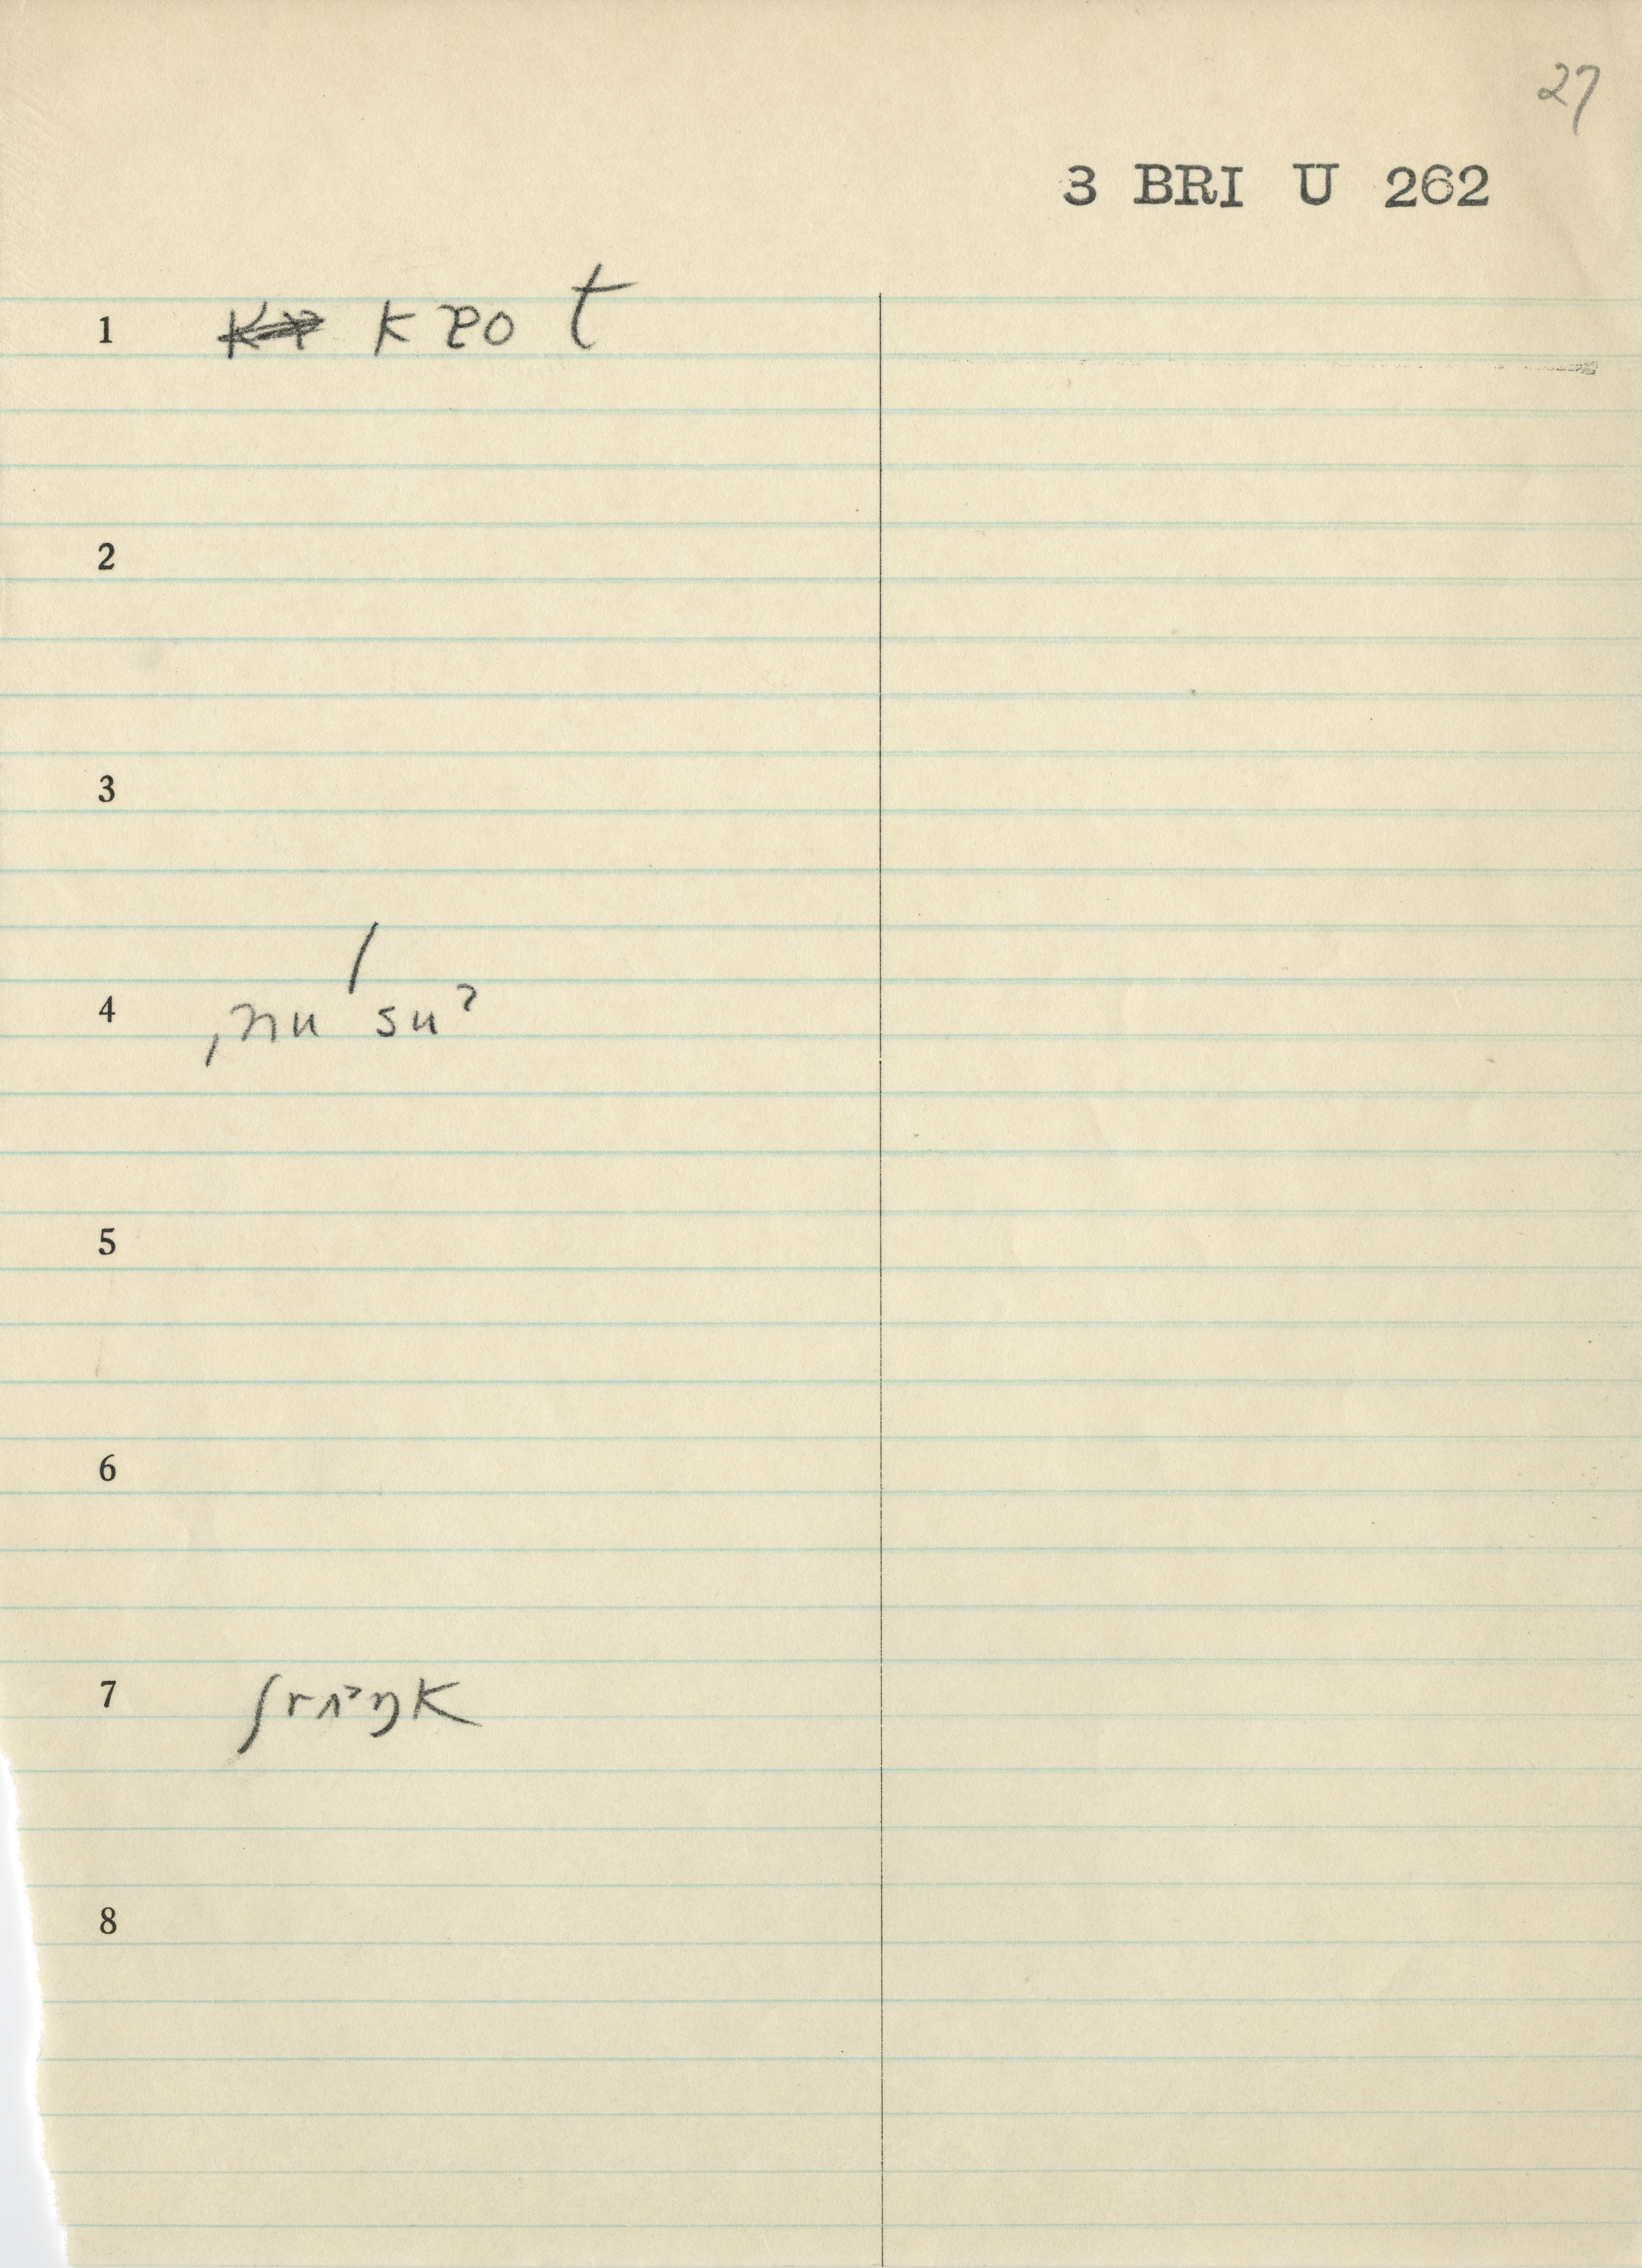 27
3 BRI U 262
1 k ᴘo t
2
3
4 ˌnu ˈsuˀ
5
6
7 ʃrʌ˃ŋk
8